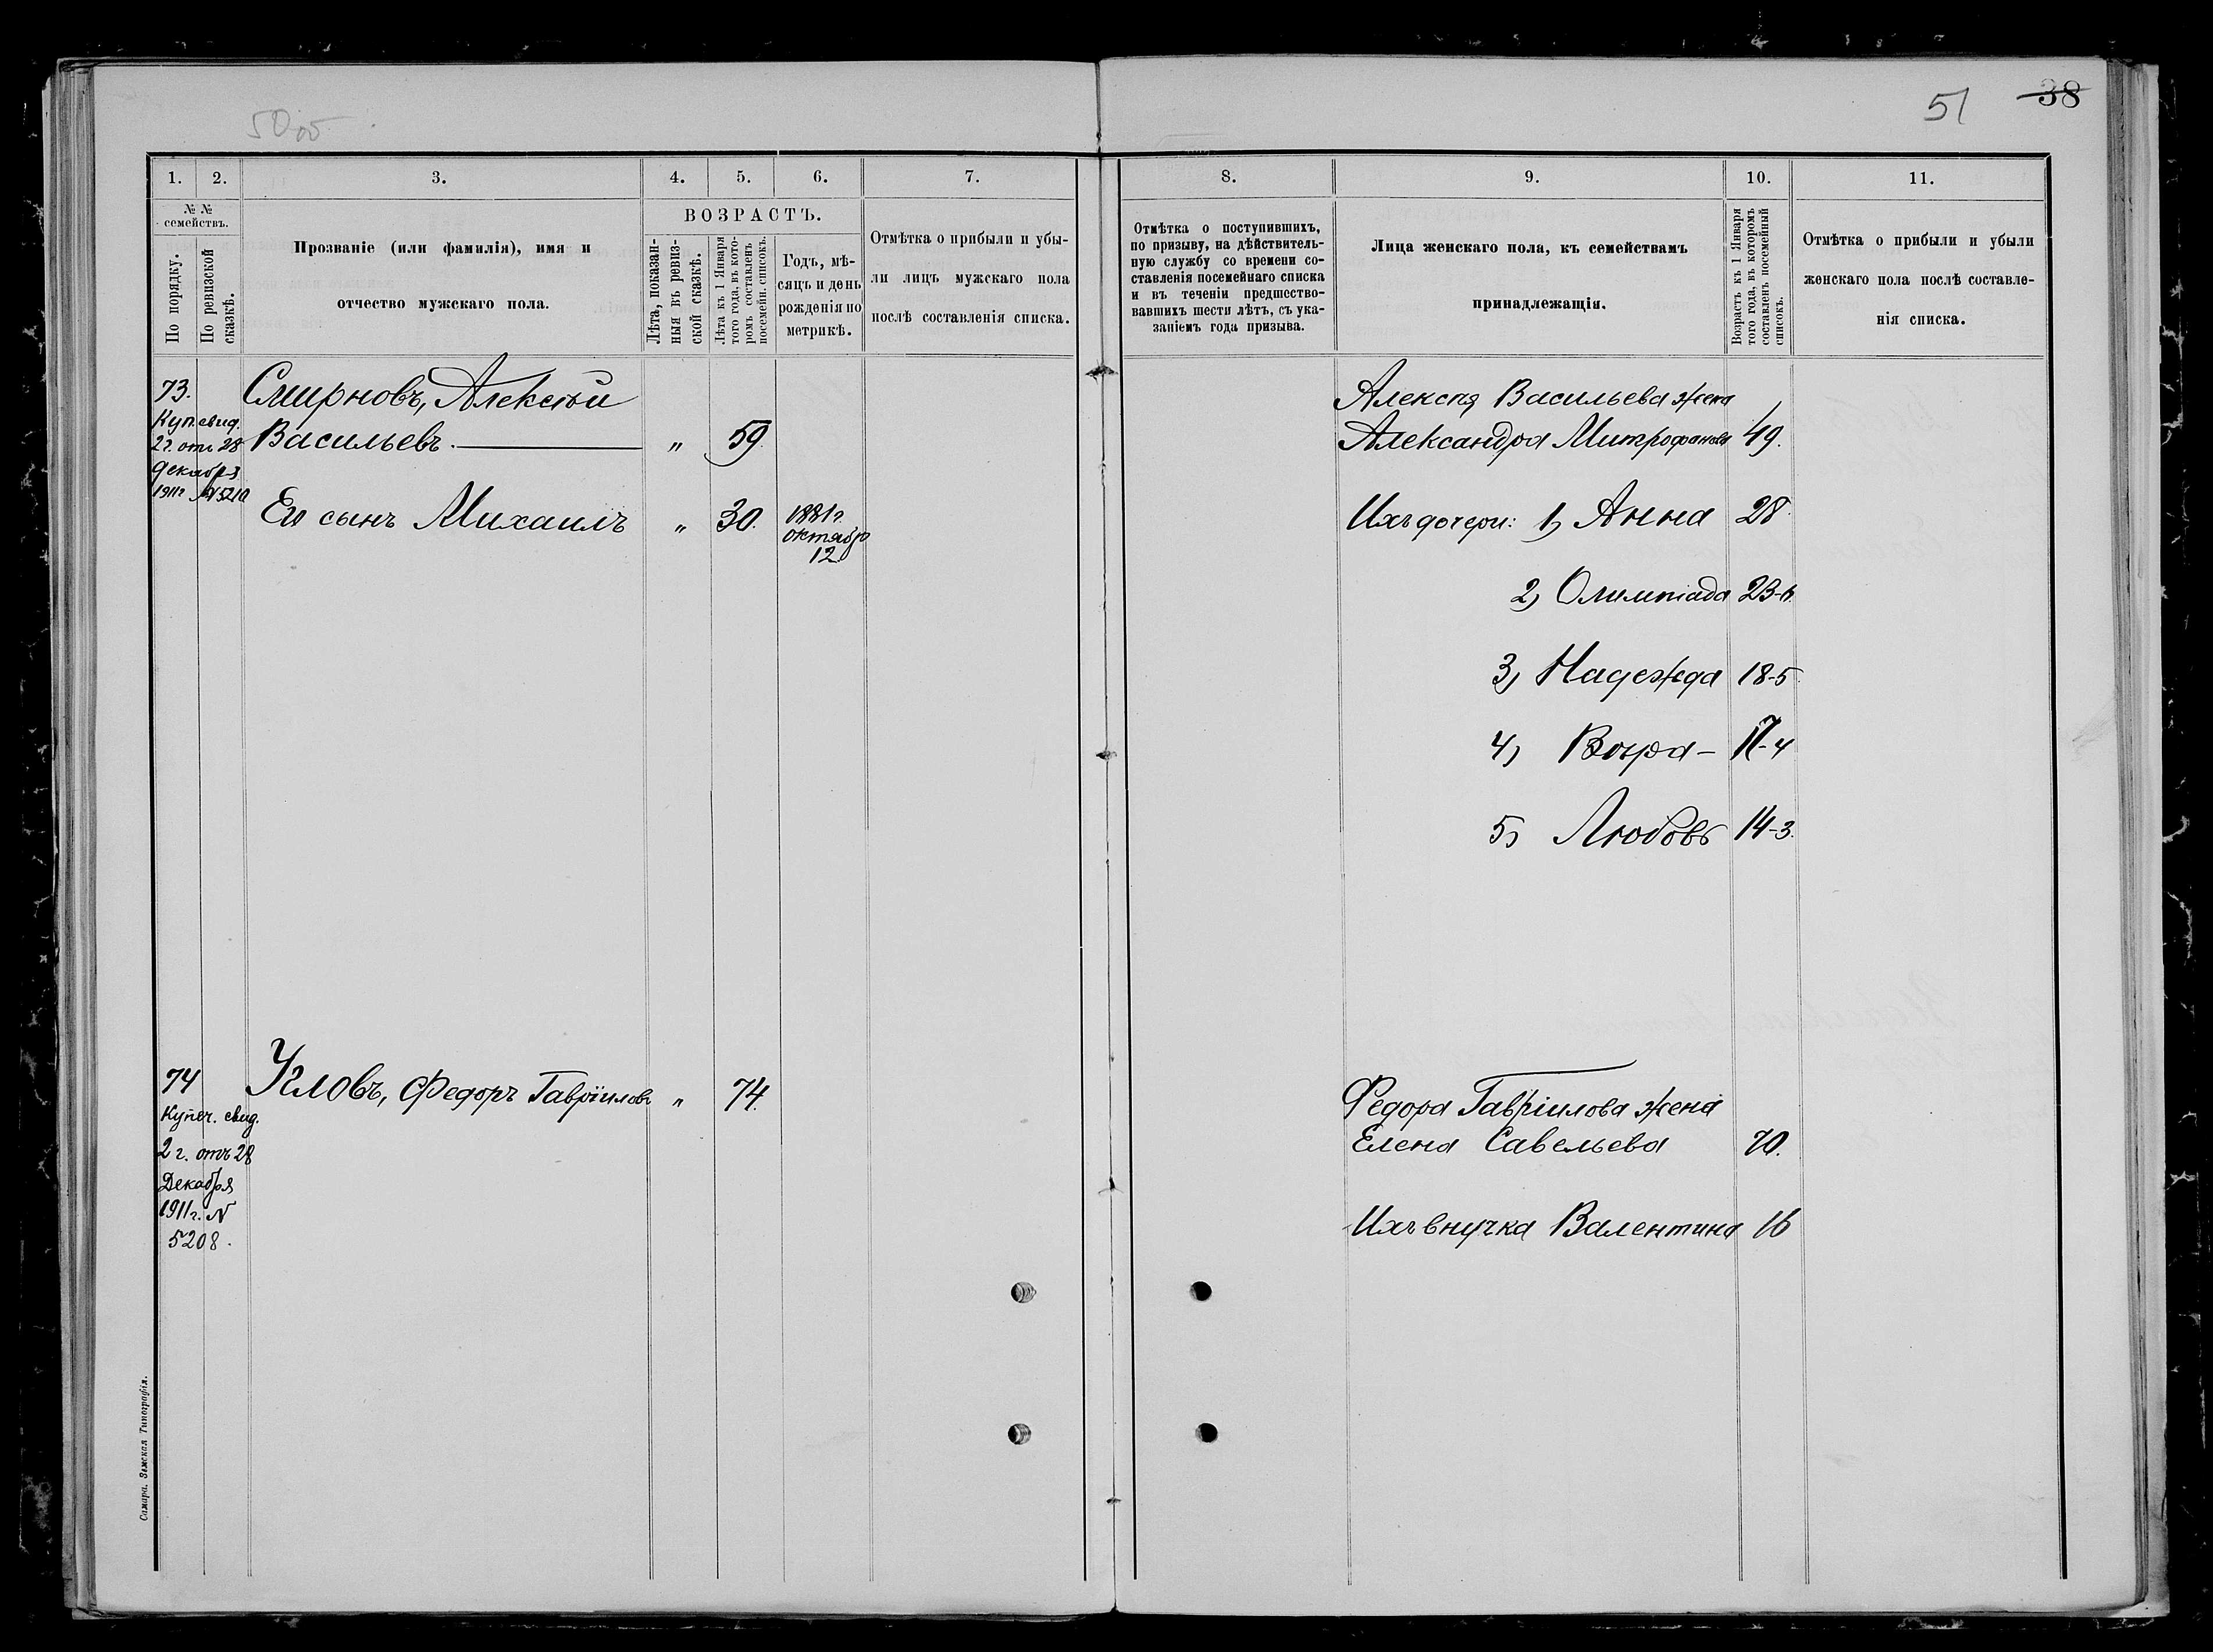 50 об
51 38
1. 2. 3. 4. 5. 6. 7.
№ №
семействъ.
По порядку.
По ревизской
сказкѣ.
Прозваніе (или фамилія), имя и
отчество мужскаго пола.
ВОЗРАСТЪ.
Лѣта, показан-
ныя въ ревиз-
ской сказкѣ.
Лѣта къ 1 Января
того года, въ кото-
ромъ составленъ
посемейн. списокъ.
Годъ, мѣ-
сяцъ и день
рожденія по
метрикѣ.
Отмѣтка о прибыли и убы-
ли лицъ мужскаго пола
послѣ составленія списка.
73.
Куп. свид.
2 г. отъ 28
декабря
1911 г № 5210
Смирновъ, Алексѣй
Васильевъ. „ 59
Его сынъ Михаилъ „ 30. 1881 г.
октябр
12
74
Купеч. свид.
2 г. отъ 28
Декабря
1911 г. N
5208.
Угловъ, Федоръ Гавріиловъ „ 74.
Самара. Земская Типографія.
8. 9. 10. 11.
Отмѣтка о поступившихъ,
по призыву, на дѣйствитель-
ную службу со времени со-
ставленія посемейнаго списка
и въ теченіи предшество-
вавшихъ шести лѣтъ, съ ука-
заніемъ года призыва.
Лица женскаго пола, къ семействамъ
принадлежащія.
Возрастъ къ 1 Января
того года, въ которомъ
составленъ посемейный
списокъ.
Отмѣтка о прибыли и убыли
женскаго пола послѣ составле-
нія списка.
Алексѣя Васильева жена
Александра Митрофанова 49.
Ихъ дочери: 1) Анна 28
2) Олимпіада 23-6
3) Надежда 18-5
4) Вѣра – 17-4
5) Любовь 14-3.
Федора Гавріилова жена
Елена Савельева 70.
Ихъ внучка Валентина 16